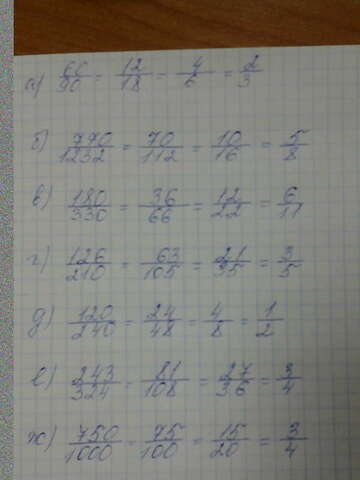 а) 60/90 = 12/18 = 4/6 = 2/3
б) 770/1232 = 70/112 = 10/16 = 5/8
в) 180/330 = 36/66 = 12/22 = 6/11
г) 126/210 = 63/105 = 21/35 = 3/5
д) 120/240 = 24/48 = 4/8 = 1/2
е) 243/324 = 81/108 = 27/36 = 3/4
ж) 750/1000 = 75/100 = 15/20 = 3/4